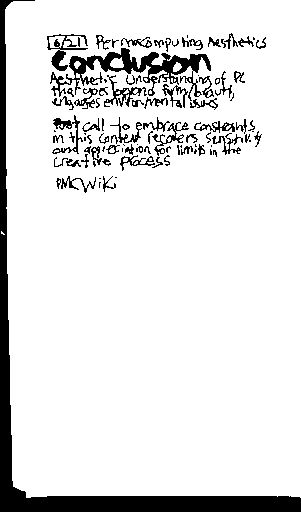 6/21 Permacomputing Aesthetics
Conclusion
Aesthetic Understanding of PC
that goes beyond form/beauty,
engages environmental issues
call to embrace constraints
in this context recovers sensitivity
and appreciation for limits in the
creative process
PMC Wiki